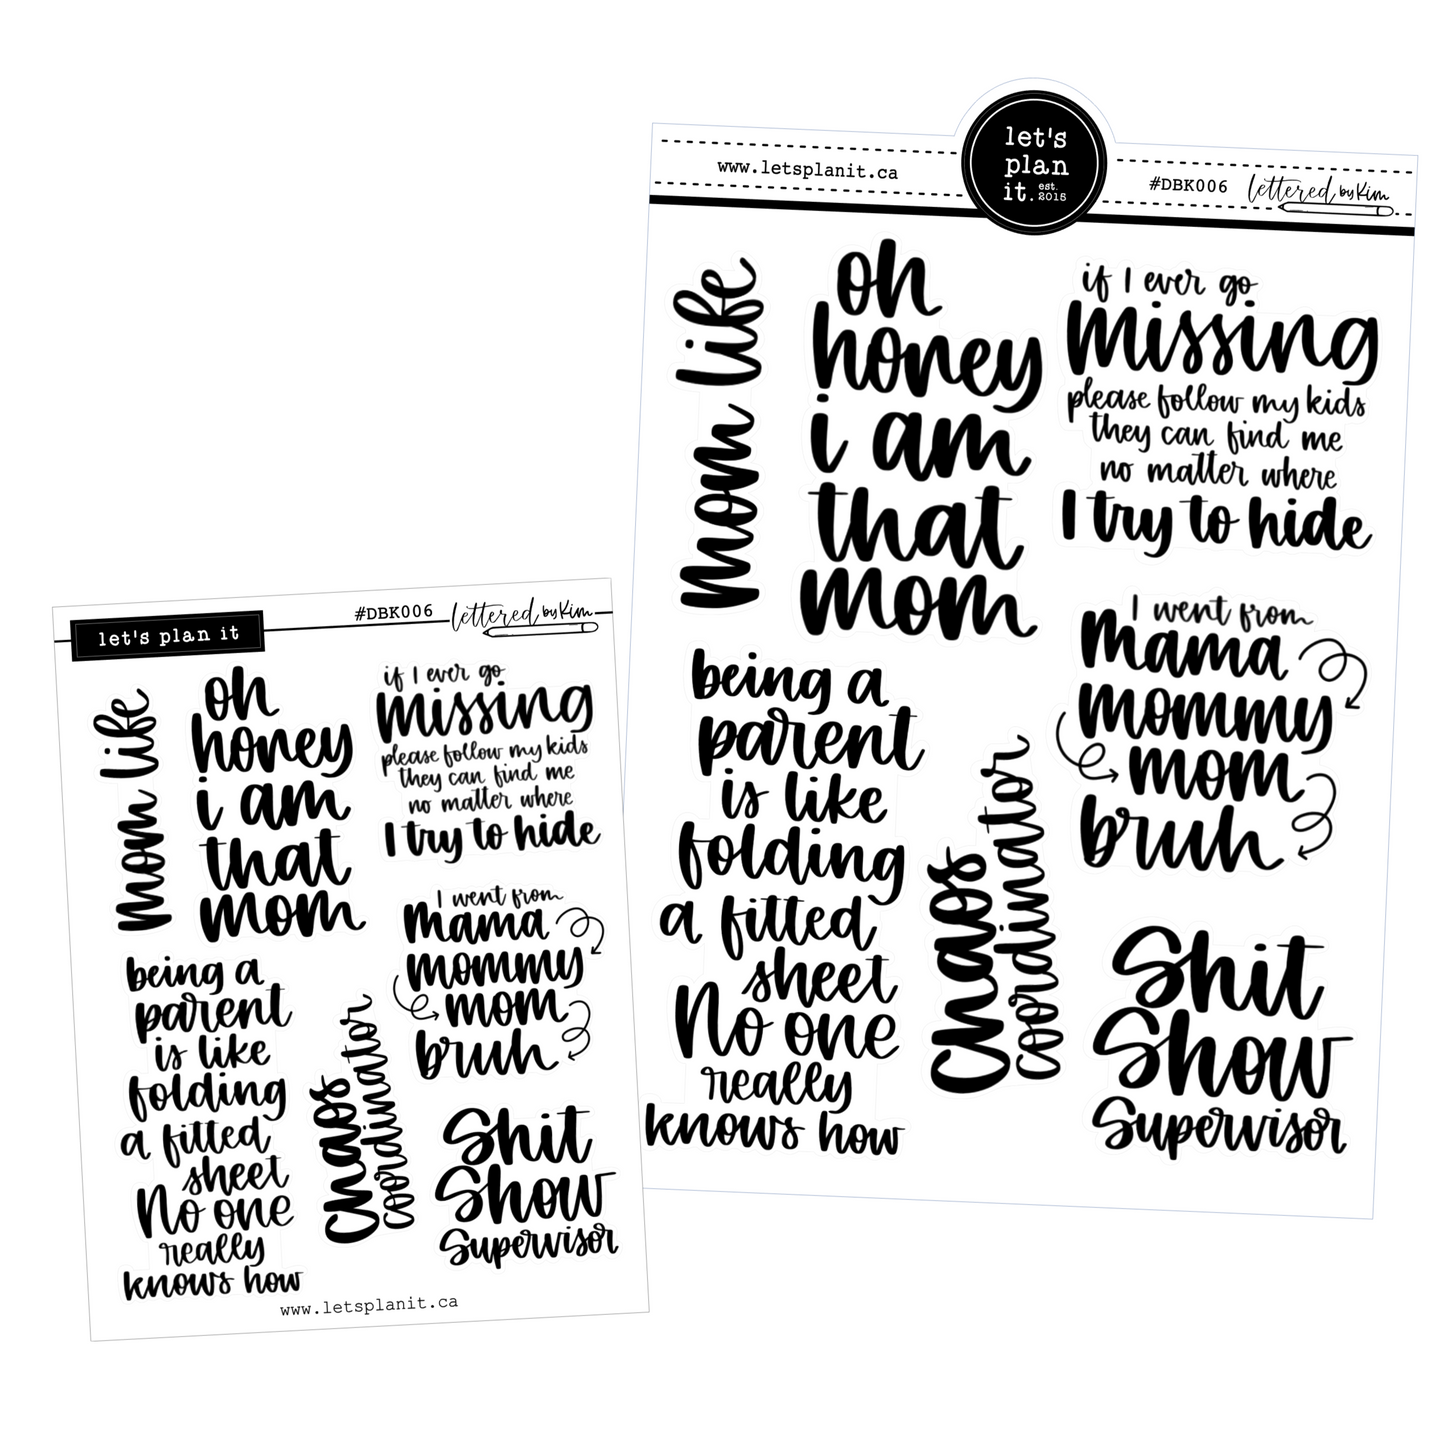 let's plan it
#DBK006
lettered by Kim
mom life
oh
honey
i am
that
mom
if I ever go
missing
please follow my kids
they can find me
no matter where
I try to hide
I went from
mama
mommy
mom
bruh
being a
parent
is like
folding
a fitted
sheet
No one
really
knows how
Chaos
coordinator
Shit
Show
Supervisor
www.letsplanit.ca
www.letsplanit.ca
let's
plan
it. est. 2015
#DBK006
lettered by Kim
mom life
oh
honey
i am
that
mom
if I ever go
missing
please follow my kids
they can find me
no matter where
I try to hide
I went from
mama
mommy
mom
bruh
being a
parent
is like
folding
a fitted
sheet
No one
really
knows how
Chaos
coordinator
Shit
Show
Supervisor